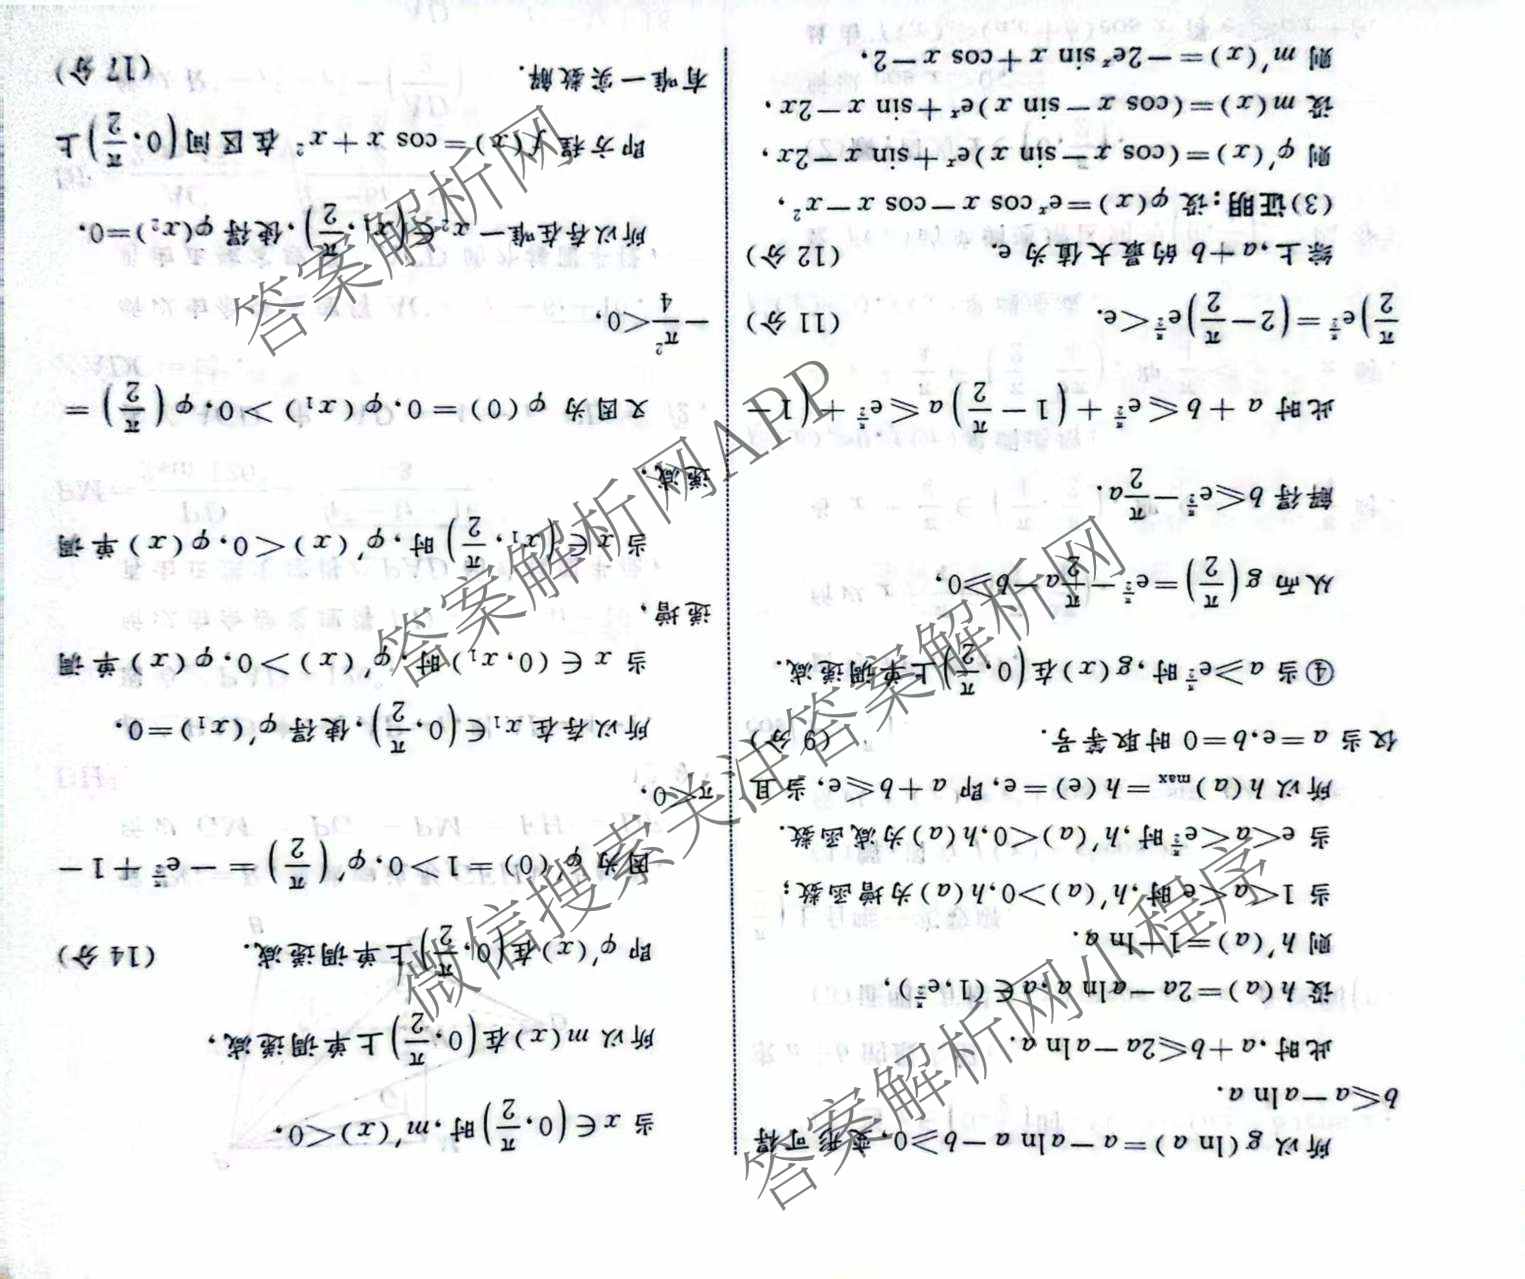 所以 g(ln a)=a-aln a-b≥0,变形可得
b≤a-aln a.
此时,a+b≤2a-aln a.
设 h(a)=2a-aln a,a∈(1,e^{π/2}),
则 h′(a)=1-ln a.
当 1<a<e 时,h′(a)>0,h(a)为增函数;
当 e<a<e^{π/2}时,h′(a)<0,h(a)为减函数.
所以 h(a)max=h(e)=e,即 a+b≤e,当且
仅当 a=e,b=0 时取等号. (9 分)
④当 a≥e^{π/2}时,g(x)在(0,π/2)上单调递减.
从而 g(π/2)=e^{π/2}-π/2a-b≥0,
解得 b≤e^{π/2}-π/2a.
此时 a+b≤e^{π/2}+(1-π/2)a≤e^{π/2}+(1-
π/2)e^{π/2}=(2-π/2)e^{π/2}<e. (11 分)
综上,a+b 的最大值为 e. (12 分)
(3)证明:设 φ(x)=eˣcos x-cos x-x²,
则 φ′(x)=(cos x-sin x)eˣ+sin x-2x,
设 m(x)=(cos x-sin x)eˣ+sin x-2x,
则 m′(x)=-2eˣsin x+cos x-2.
当 x∈(0,π/2)时,m′(x)<0,
所以 m(x)在(0,π/2)上单调递减,
即 φ′(x)在(0,π/2)上单调递减. (14 分)
因为 φ′(0)=1>0,φ′(π/2)=-e^{π/2}+1-
π<0,
所以存在 x₁∈(0,π/2),使得 φ′(x₁)=0.
当 x∈(0,x₁)时,φ′(x)>0,φ(x)单调
递增,
当 x∈(x₁,π/2)时,φ′(x)<0,φ(x)单调
递减.
又因为 φ(0)=0,φ(x₁)>0,φ(π/2)=
-π²/4<0,
所以存在唯一 x₂∈(x₁,π/2),使得 φ(x₂)=0,
即方程 f(x)=cos x+x² 在区间(0,π/2)上
有唯一实数解. (17 分)
答案解析网
答案解析网APP
微信搜索关注答案解析网
答案解析网小程序